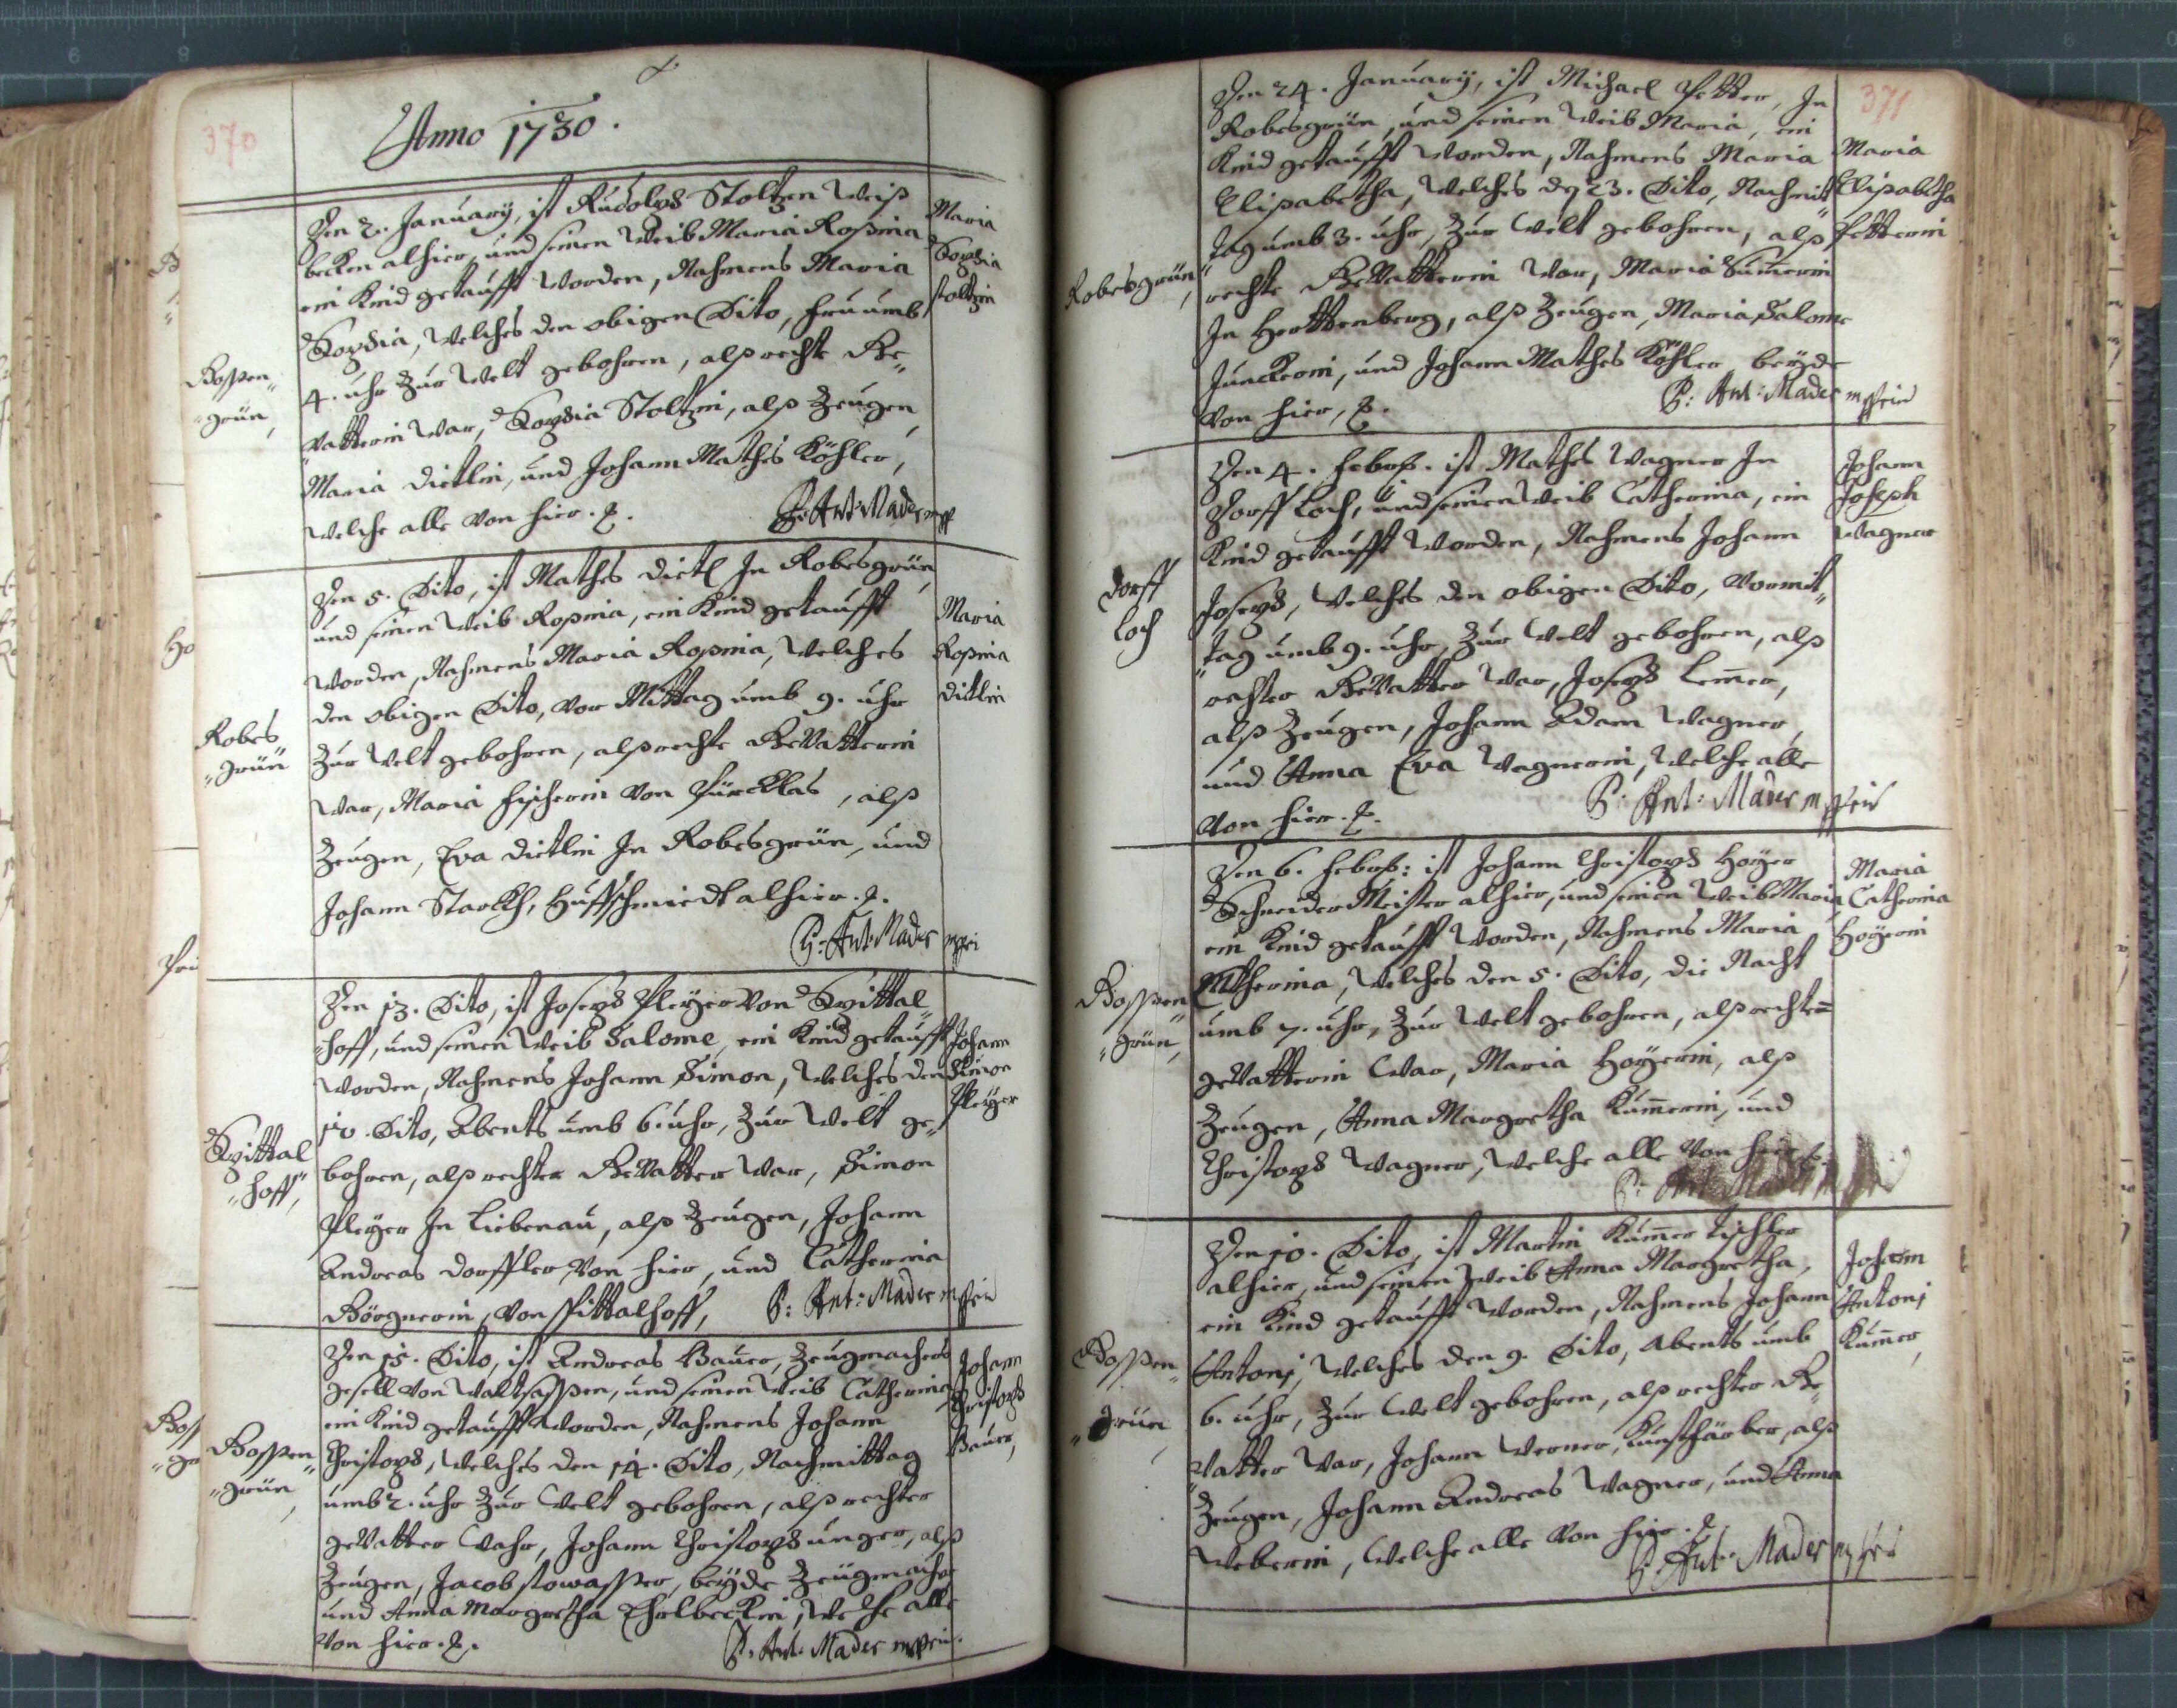 370
Anno 1730.
Den 2. January, ist Rudolph Stoltzen Weiß
becken alhier, und seinen Weib Maria Rosina
ein Kind getaufft worden, Nahmens Maria
Sophia, welches den obigen Dito, fru umb
4. uhr zur Welt gebohren, alß rechte Ge„
vatterin war, Sophia Stoltzin, alß Zeugen,
Maria dietlin, und Johann Mathes Köhler,
welche alle von hier.
P: Ant: Mader mpp
Boßen„
„grün,
Maria
Sophia
stoltzin
Den 5. Dito, ist Mathes dietl In Robesgrün,
und seinen Weib Rosina, ein Kind getaufft
worden, Nahmens Maria Rosina, welches
den obigen Dito, vor Mittag umb 9. uhr
zur Welt gebohren, alß rechte Gevatterin
war, Maria fischerin von Pürckhlas, alß
Zeugen, Eva dietlin In Robesgrün, und
Johann Starckh, Huffschmiedt alhier.
P: Ant: Mader mppri
Robes
„grün
Maria
Rosina
dietlin
Den 13. Dito, ist Joseph Pleyer von Spittal„
„hoff, und seinen Weib Salome, ein Kind getaufft
worden, Nahmens Johann Simon, welches den
10. Dito, Abents umb 6. uhr, zur Welt ge„
bohren, alß rechter Gevatter war, Simon
Pleyer In Liebenau, alß Zeugen, Johann
Andreas dorffler von hier, und Catharina
Börgnerin, von Spittalhoff,
P: Ant: Mader mppria
Spittal
„hoff,
Johann
Simon
Pleyer
Den 15. Dito, ist Andreas Bauer, Zeugmachers
gesell von Waltsaßen, und seinen Weib Catharina
ein Kind getaufft worden, Nahmens Johann
Christoph, welches den 14. Dito, Nachmittag
umb 2. uhr zur Welt gebohren, alß rechter
gevatter wahr, Johann Christoph unger, alß
Zeugen, Jacob stowaßer, beyde Zeugmacher
und Anna Margretha, welche alle
von hier.
P: Ant: Mader mppria.
Boßen„
„grün,
Johann
Christoph
Bauer,
371
Den 24. January, ist Michael Petter, In
Robesgrün, und seinen Weib Maria, ein
Kind getaufft worden, Nahmens Maria
Elisabetha, welches dn 23. Dito, Nachmit„
tag umb 3. uhr, zur Welt gebohren, alß
rechte Gevatterin war, Maria Sumerin
In Harttenberg, alß Zeugen, Maria Salome
Junckerin, und Johann Mathes Köhler beyde
von hier,
P: Ant: Mader mppria
Robesgrün,
Maria
Elisabetha
petterin
Den 4. Febr: ist Mathes Wagner In
Dorff Loch, und seinen Weib Catharina, ein
Kind getaufft worden, Nahmens Johann
Joseph, welches den obigen Dito, Vormit„
tag umb 9. uhr, zur Welt gebohren, alß
rechter Gevatter war, Joseph Lem̄er,
alß Zeugen, Johann Adam Wagner,
und Anna Eva Wagnerin, welche alle
von hier.
P: Ant: Mader mppria
Dorff
Loch
Johann
Joseph
Wagner
Den 6. Febr: ist Johann Christoph Hoyer
Schneider Meister alhier, und seinen Weib Maria
ein Kind getaufft worden, Nahmens Maria
Catharina, welches den 5. Dito, die Nacht
umb 7. uhr, zur Welt gebohren, alß rechte
gevatterin war, Maria Hoyerin, alß
Zeugen, Anna Margretha Kum̄erin, und
Christoph Wagner, welche alle von hier.
P: Ant: Mader
Boßen„
„grün,
Maria
Catharina
Hoyerin
Den 10. Dito, ist Martin Kum̄er Tischler
alhier, und seinen Weib Anna Margretha,
ein Kind getaufft worden, Nahmens Johann
Antoni, welches den 9. Dito, abents umb
6. uhr, zur Welt gebohren, alß rechter Ge„
vatter war, Johann Werner, Kunstfärber, alß
Zeugen, Johann Andreas Wagner, und Anna
Weberin, welche alle von hier.
P: Ant: Mader mppria
Boßen„
„grün,
Johann
Antoni
Kum̄er,